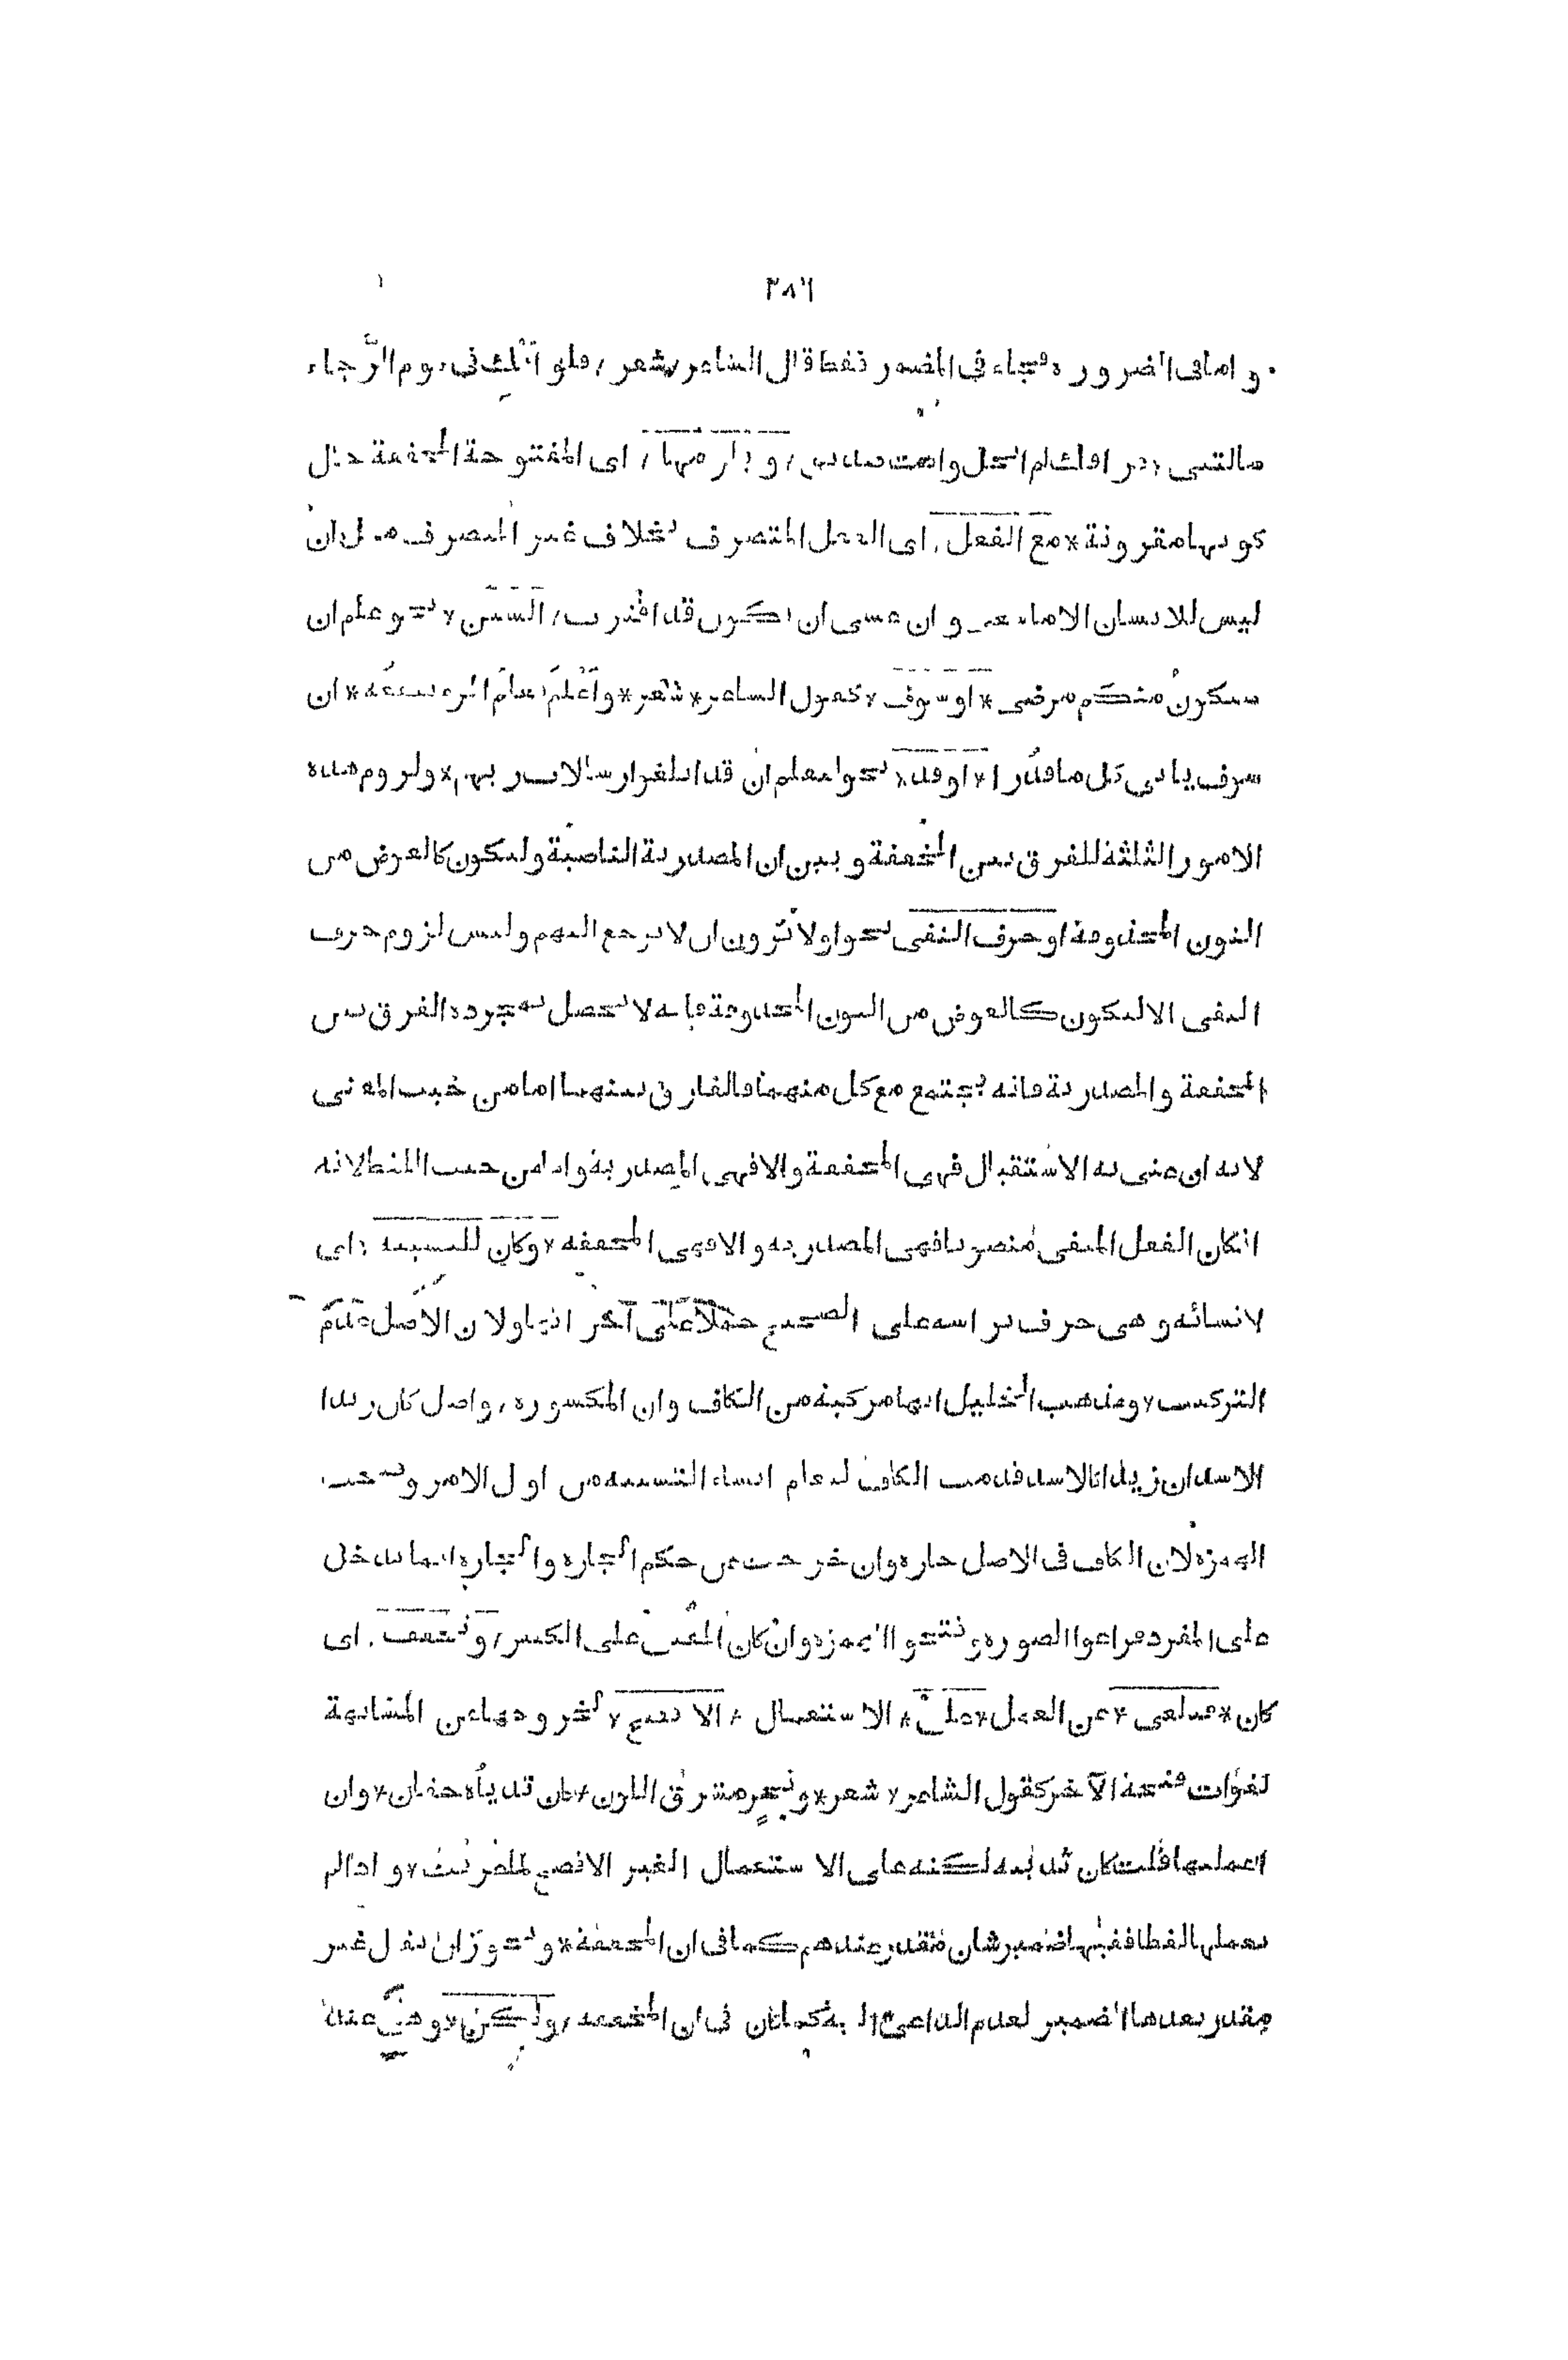 ٣٨٦
واما فى الضرورة فجاء فى المضمر فقط قال الشاعر شعر فلو انّك فى يوم الرّجاء
سالتنى فراقك لم ابخل وانت صديق ويلزمها اى المفتوحة المخففة حال
كونها مقرونة * مع الفعل اى الفعل المتصرف بخلاف غير المتصرف مثل ان
ليس للانسان الا ما سعى وان عسى ان يكون قد اقترب السين * نحو علم ان
سيكون منكم مرضى * او سوف * كقول الشاعر * شعر * واعلم فعلم المرء ينفعه * ان
سوف ياتى كل ما قدرا * او قد * نحو ليعلم ان قد ابلغوا رسالات ربهم * ولزوم هذه
الامور الثلثة للفرق بين المخففة وبين ان المصدرية الناصبة وليكون كالعوض من
النون المحذوفة او حرف النفى نحو اولا يرون ان لا يرجع اليهم وليس لزوم حرف
النفى الا ليكون كالعوض من النون المحذوفة فانه لا يحصل بمجرده الفرق بين
المخففة والمصدرية فانه يجتمع مع كل منهما فالفارق بينهما اما من حيث المعنى
لانه ان عنى به الاستقبال فهى المخففة والا فهى المصدرية واما من حيث اللفظ لانه
ان كان الفعل المنفى منصوبا فهى المصدرية والا فهى المخففة * وكان للتشبيه اى
لانشائه وهى حرف براسه على الصحيح حملا على آخر اتها ولان الاصل عدم
التركيب * ومذهب الخليل انها مركبة من الكاف وان المكسورة واصل كان زيدا
الاسد ان زيدا كالاسد قدمت الكاف ليعلم انشاء التشبيه من اول الامر وفتحت
الهمزة لان الكاف فى الاصل جارة وان خرجت عن حكم الجارة والجارة انما تدخل
على المفرد فراعوا الصورة وفتحوا الهمزة وان كان المعنى على الكسر وتخفف اى
كان * فتلغى * عن العمل * على * الاستعمال * الافصح * لخروجها عن المشابهة
لفوات فتحة الآخر كقول الشاعر * شعر * ونحر مشرق اللون * كان ثدياه حقان * وان
اعملتها قلت كان ثدييه لكنه على الاستعمال الغير الافصح لما عرفت * واذا لم
تعملها لفظا ففيها ضمير شان مقدر عندهم كما فى ان المخففة * ويجوز ان يقال غير
مقدر بعدها الضمير لعدم الداعى اليه كما كان فى ان المخففة ولكن * وهى عند